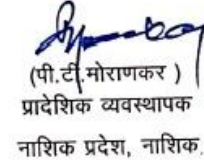 (पी.टी.मोराणकर )
प्रादेशिक व्यवस्थापक
नाशिक प्रदेश, नाशिक.